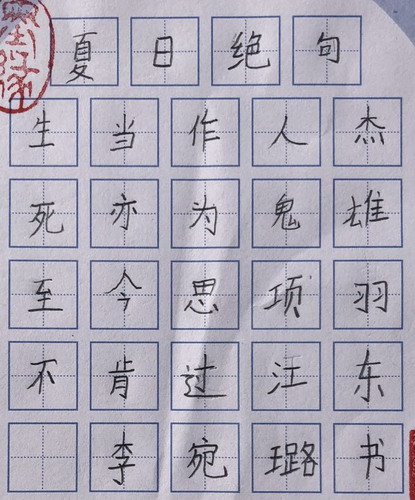 夏日绝句
生当作人杰
死亦为鬼雄
至今思项羽
不肯过江东
李宛璐书